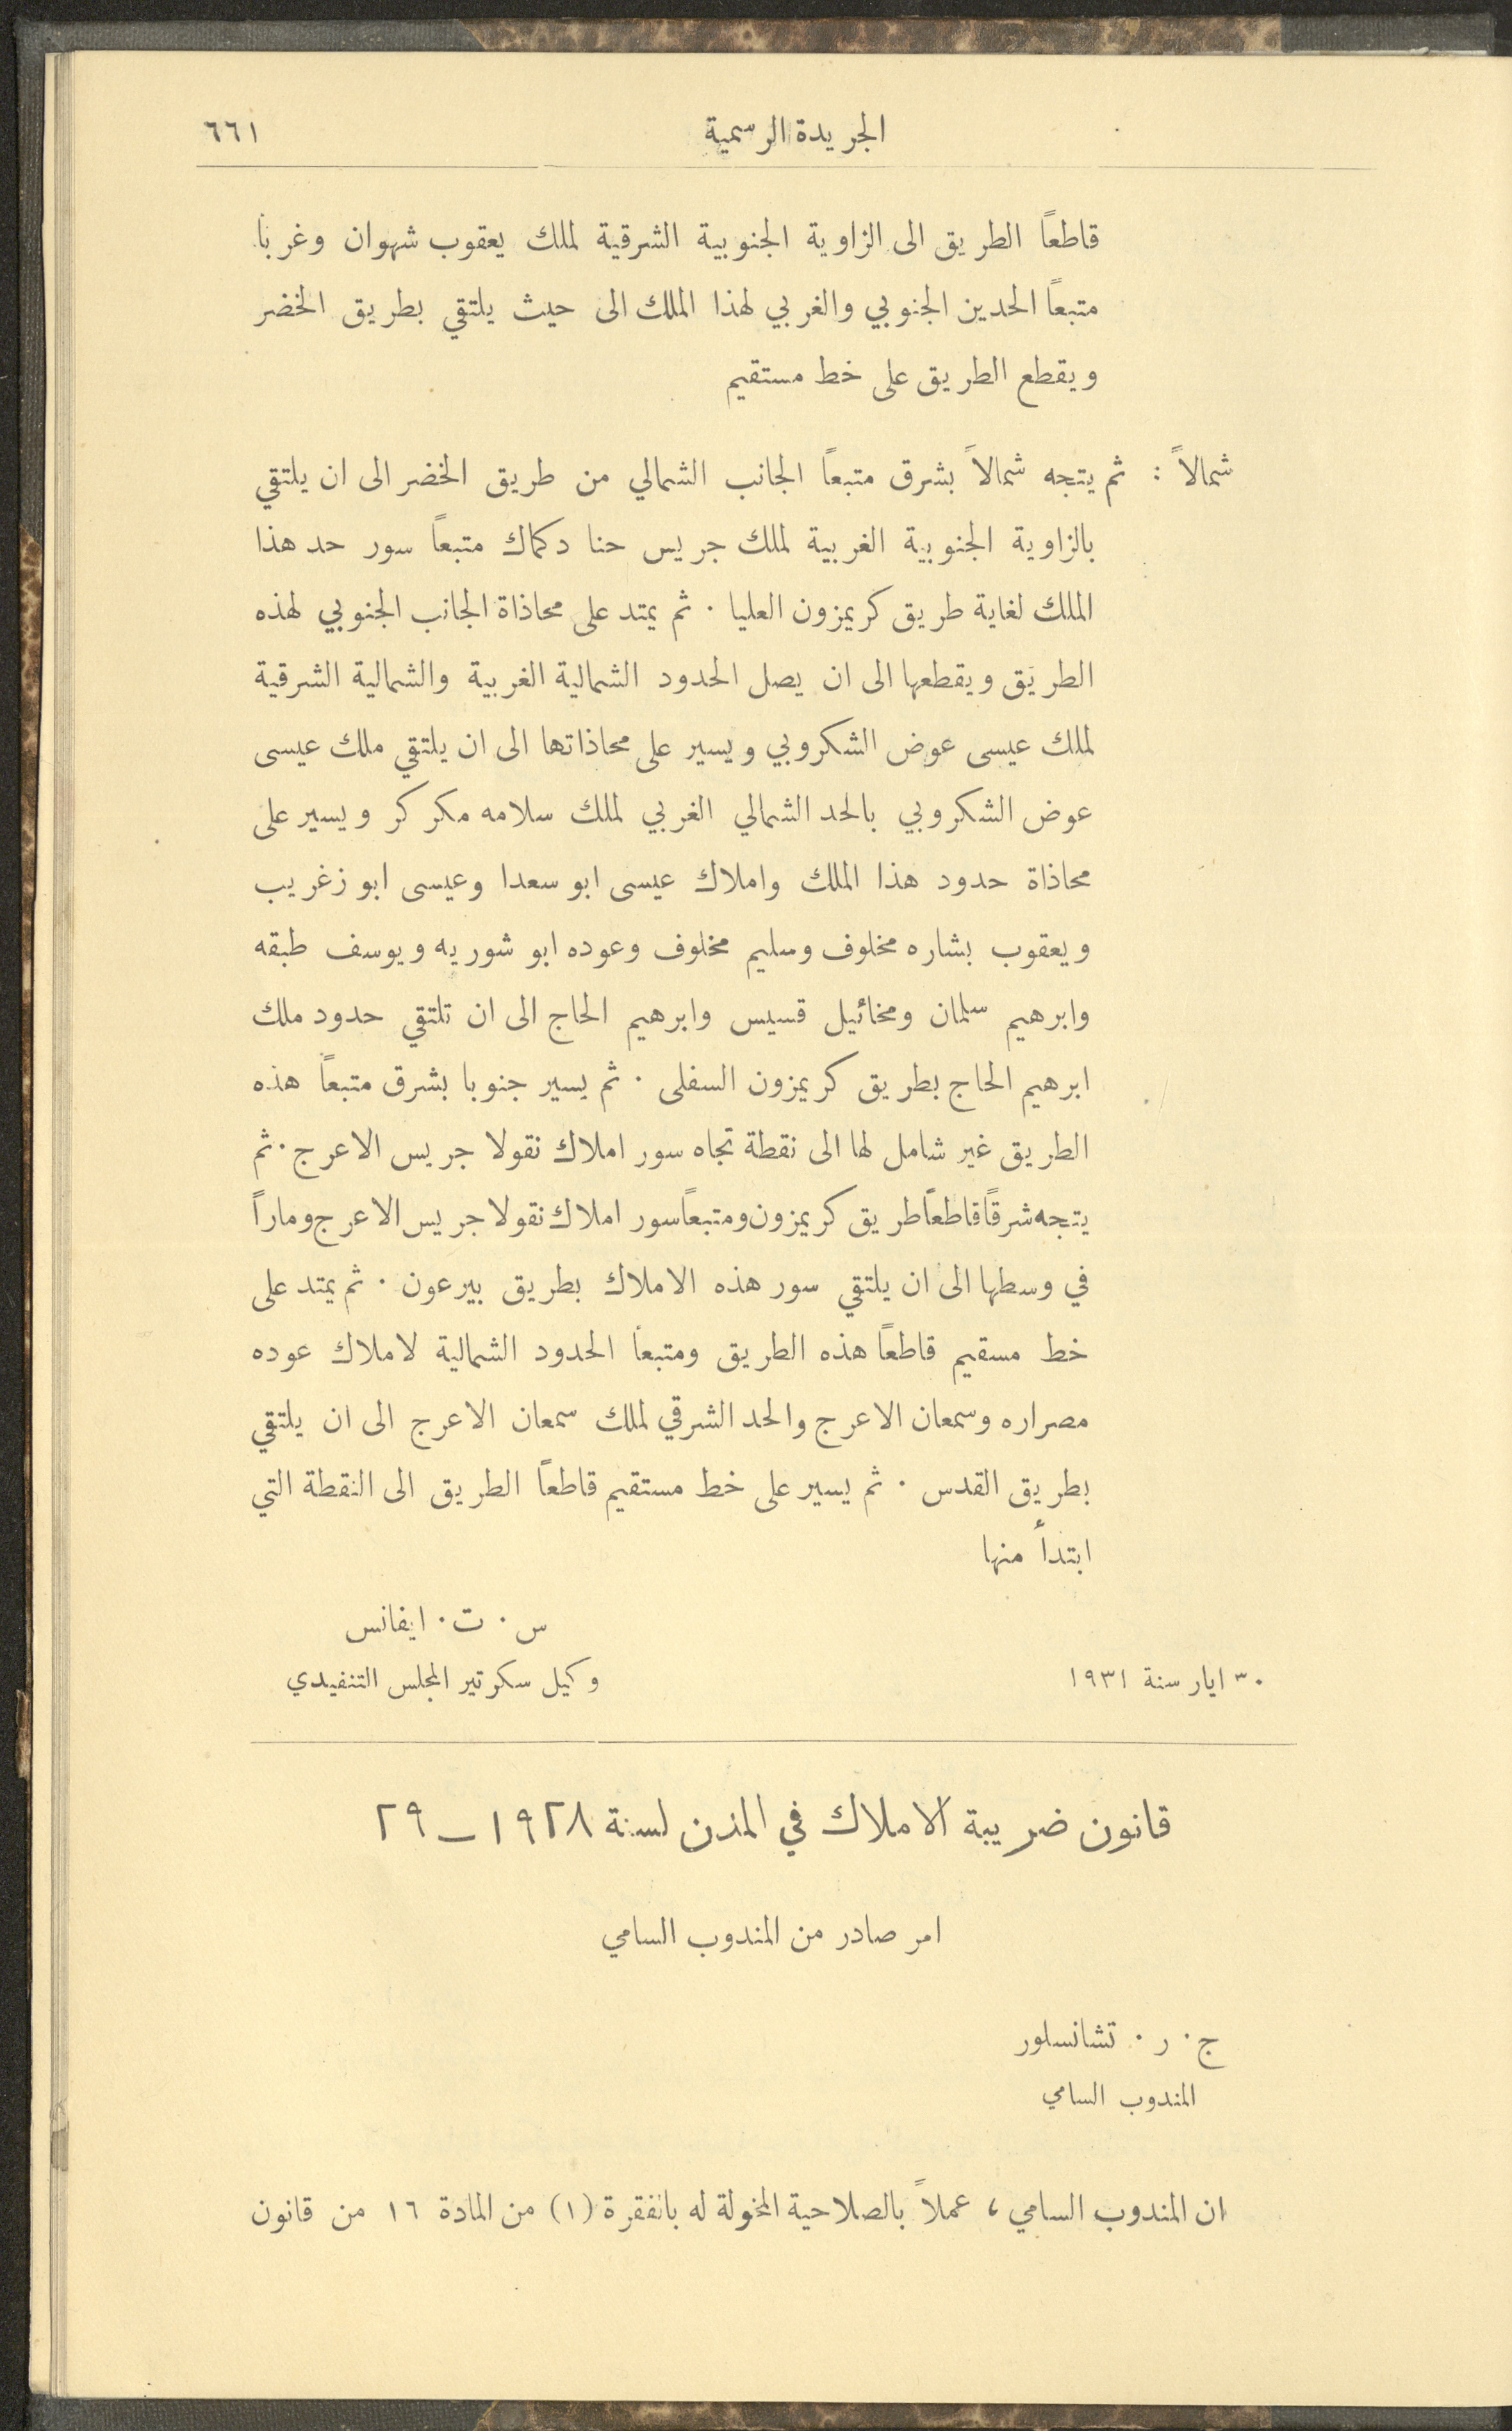 الجريدة الرسمية
٦٦١
قاطعاً الطريق الى الزاوية الجنوبية الشرقية لملك يعقوب شهوان وغرباً
متبعاً الحدين الجنوبي والغربي لهذا الملك الى حيث يلتقي بطريق الخضر
ويقطع الطريق على خط مستقيم
شمالاً : ثم يتجه شمالاً بشرق متبعاً الجانب الشمالي من طريق الخضر الى ان يلتقي
بالزاوية الجنوبية الغربية لملك جريس حنا دكماك متبعاً سور حد هذا
الملك لغاية طريق كريمزون العليا . ثم يمتد على محاذاة الجانب الجنوبي لهذه
الطريق ويقطعها الى ان يصل الحدود الشمالية الغربية والشمالية الشرقية
لملك عيسى عوض الشكروبي ويسير على محاذاتها الى ان يلتقي ملك عيسى
عوض الشكروبي بالحد الشمالي الغربي لملك سلامه مكركر ويسير على
محاذاة حدود هذا الملك واملاك عيسى ابو سعدا وعيسى ابو زغريب
ويعقوب بشاره مخلوف وسليم مخلوف وعوده ابو شوريه ويوسف طبقه
وابرهيم سلمان ومخائيل قسيس وابرهيم الحاج الى ان تلتقي حدود ملك
ابرهيم الحاج بطريق كريمزون السفلى . ثم يسير جنوبا بشرق متبعاً هذه
الطريق غير شامل لها الى نقطة تجاه سور املاك نقولا جريس الاعرج . ثم
يتجه شرقاً قاطعاً طريق كريمزون ومتبعاً سور املاك نقولا جريس الاعرج وماراً
في وسطها الى ان يلتقي سور هذه الاملاك بطريق بيرعون . ثم يمتد على
خط مسقيم قاطعاً هذه الطريق ومتبعاً الحدود الشمالية لاملاك عوده
مصراره وسمعان الاعرج والحد الشرقي لملك سمعان الاعرج الى ان يلتقي
بطريق القدس . ثم يسير على خط مستقيم قاطعاً الطريق الى النقطة التي
ابتدأ منها
س . ت . ايفانس
٣٠ ايار سنة ١٩٣١
وكيل سكرتير المجلس التنفيدي
قانون ضريبة الاملاك في المدن لسنة ١٩٢٨ - ٢٩
امر صادر من المندوب السامي
ج . ر . تشانسلور
المندوب السامي
ان المندوب السامي ، عملاً بالصلاحية المخولة له بالفقرة (١) من المادة ١٦ من قانون